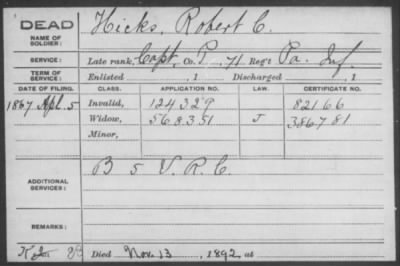 DEAD
NAME OF SOLDIER: Hicks, Robert C.
SERVICE: Late rank, Capt, Co. P, 71 Reg't Pa. Inf.
TERM OF SERVICE: Enlisted , 1 Discharged , 1
DATE OF FILING. CLASS. APPLICATION NO. LAW. CERTIFICATE NO.
1867 Apl. 5 Invalid, 124 329 82166
Widow, 568351 J 386781
Minor,
ADDITIONAL SERVICES: B 5 V. R. C.
REMARKS:
Died Nov. 13, 1892, at